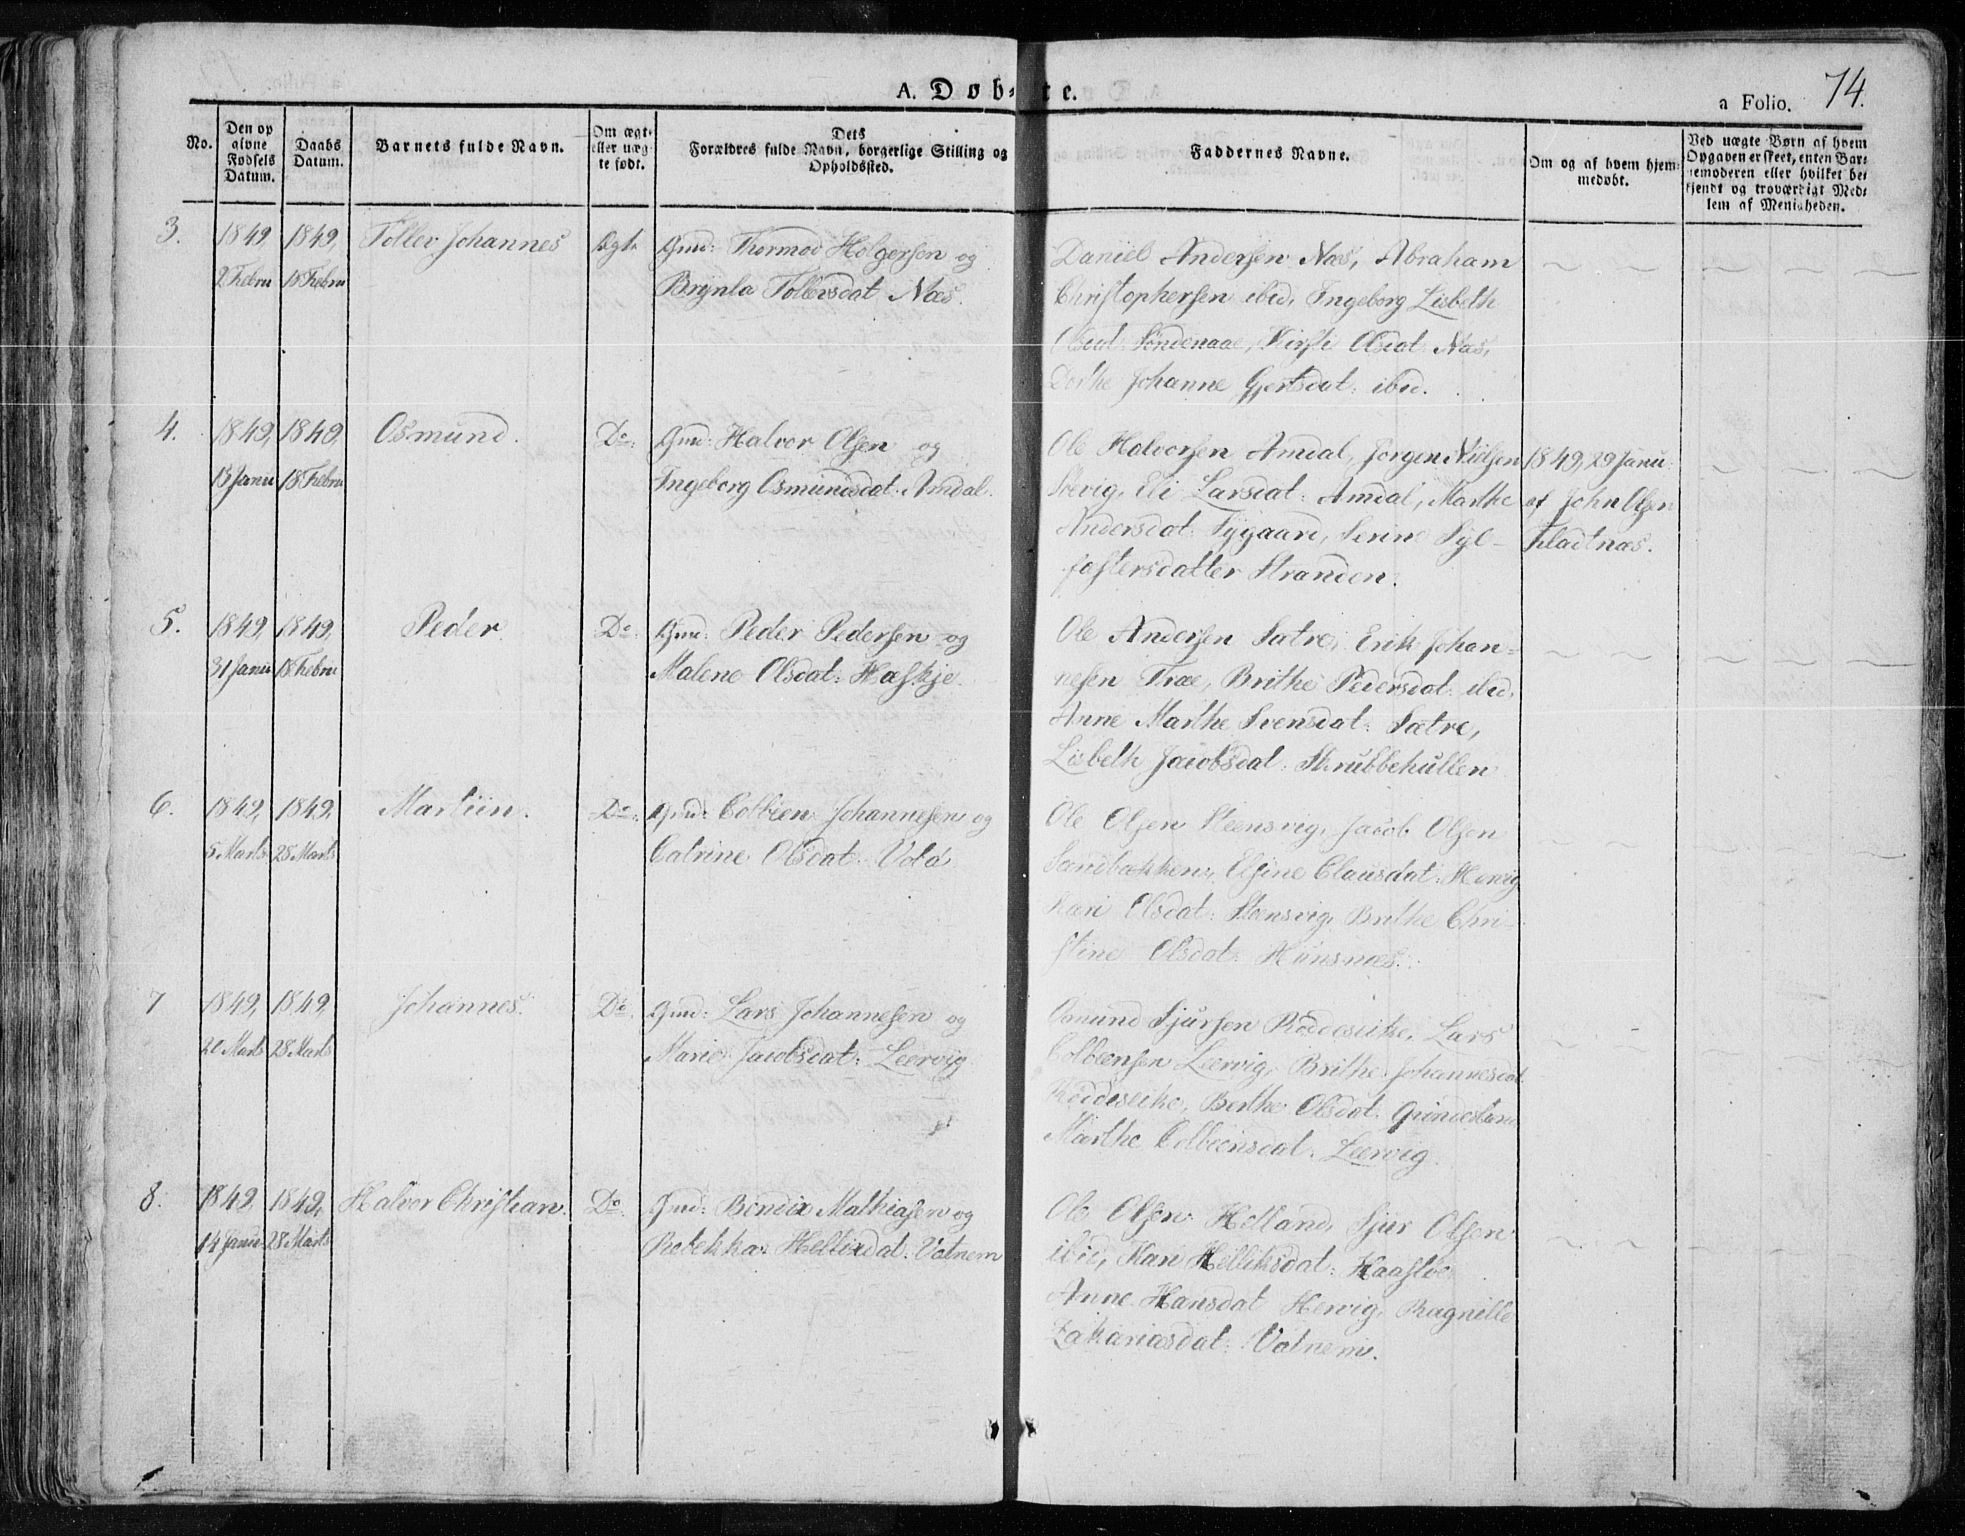 A. Døb-te.
a Folio. 74.
No.
Den op
givne
Fødsels
Datum.
Daabs
Datum.
Barnets fulde Navn.
Om ægte
eller uæg-
te født.
Dets
Forældres fulde Navn, borgerlige Stilling og
Opholdssted.
Faddernes Navne.
Om og af hvem hjem-
medøbt.
Ved uægte Børn af hvem
Opgaven er skeet, enten Bar-
nemoderen eller hvilket be-
kjendt og troværdigt Med-
lem af Menigheden.
3.
1849,
2 Febru
1849,
18 Febru
Tollev Johannes
Ægte
Gmd: Thormod Holgersen og
Brynla Tollevsdat Næs.
Daniel Andersen Næs, Abraham
Christophersen ibid, Ingeborg Lisbeth
Olsdat: Søndenaae, Kirsti Olsdat: Næs,
Dorthe Johanne Gjertsdat: ibid.
4.
1849,
13 Janu
1849,
18 Febru
Osmund.
Do
Gmd: Halvor Olsen og
Ingeborg Osmundsdat: Amdal.
Ole Halvorsen Amdal, Jørgen Nielsen
Solvig, Eli Larsdat: Amdal, Marthe
Andersdat: Tygaard, Serine Syl-
festersdatter Stranden.
1849, 29 Janu:
af John Olsen
Fladtnæs.
5.
1849,
31 Janu
1849,
18 Febru
Peder
Do
Gmd: Peder Pedersen og
Malene Olsdat: Hæskje.
Ole Andersen Sætre, Erik Johan-
nesen Træe, Brithe Pedersdat: ibid,
Anne Marthe Svensdat: Sætre,
Lisbeth Jacobsdat: Skrubbehullen
6.
1849,
5 Marts
1849,
28 Marts
Martiin.
Do
Gmd: Colbien Johannesen og
Catrine Olsdat: Vold
Ole Olsen Steensvig, Jacob Olsen
Sandbækken, Elsine Clausdat: Hervig
Kari Olsdat: Steensvig, Brithe Chri-
stine Olsdat: Hunsnæs.
7
1849,
20 Marts
1849,
28 Marts
Johannes.
Do
Gmd: Lars Johannesen og
Marie Jacobsdat: Leervig
Osmund Sjursen Røddeseike, Lars
Colbeensen Leervig, Brithe Johannesdat
Røddeseike, Berthe Olsdat:
Marthe Colbeensdat: Leervig.
8.
1849,
14 Janu
1849,
28 Marts
Halvor Christian.
Do
Gmd: Bendix Mathiasen og
Rebekka Hellixdat: Vatnem
Ole Olsen Helland, Sjur Olsen
ibid, Kari Helliksdat: Kaastøe
Anne Hansdat Hervig, Ragnille
Zakariasdat: Vatnem.